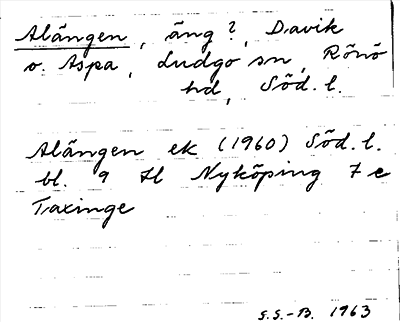 Alängen, äng?, Davik
o. Aspa, Ludgo sn, Rönö
hd, Söd. l.
Alängen ek (1960) Söd. l.
bl. 9 H Nyköping 7 e
Taxinge
S.S.-B. 1963